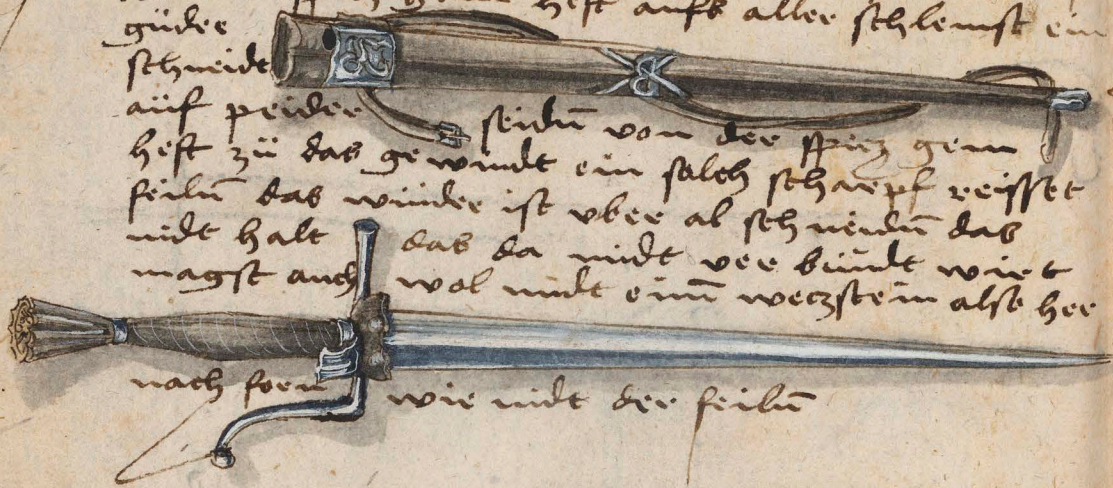 heft aufs aller schlemst ein
güder
schneidt
auf peider seidn̄ von der spicz gem
heft zü das gewindt ein solch scharpf reisset
feilun̄ das wunder ist vber al schneidun̄ das
nidt halt das da nidt ver bundt wirt
magst auch wol nidt einn̄ weczstein also her
nach forn wie nidt der feilun̄